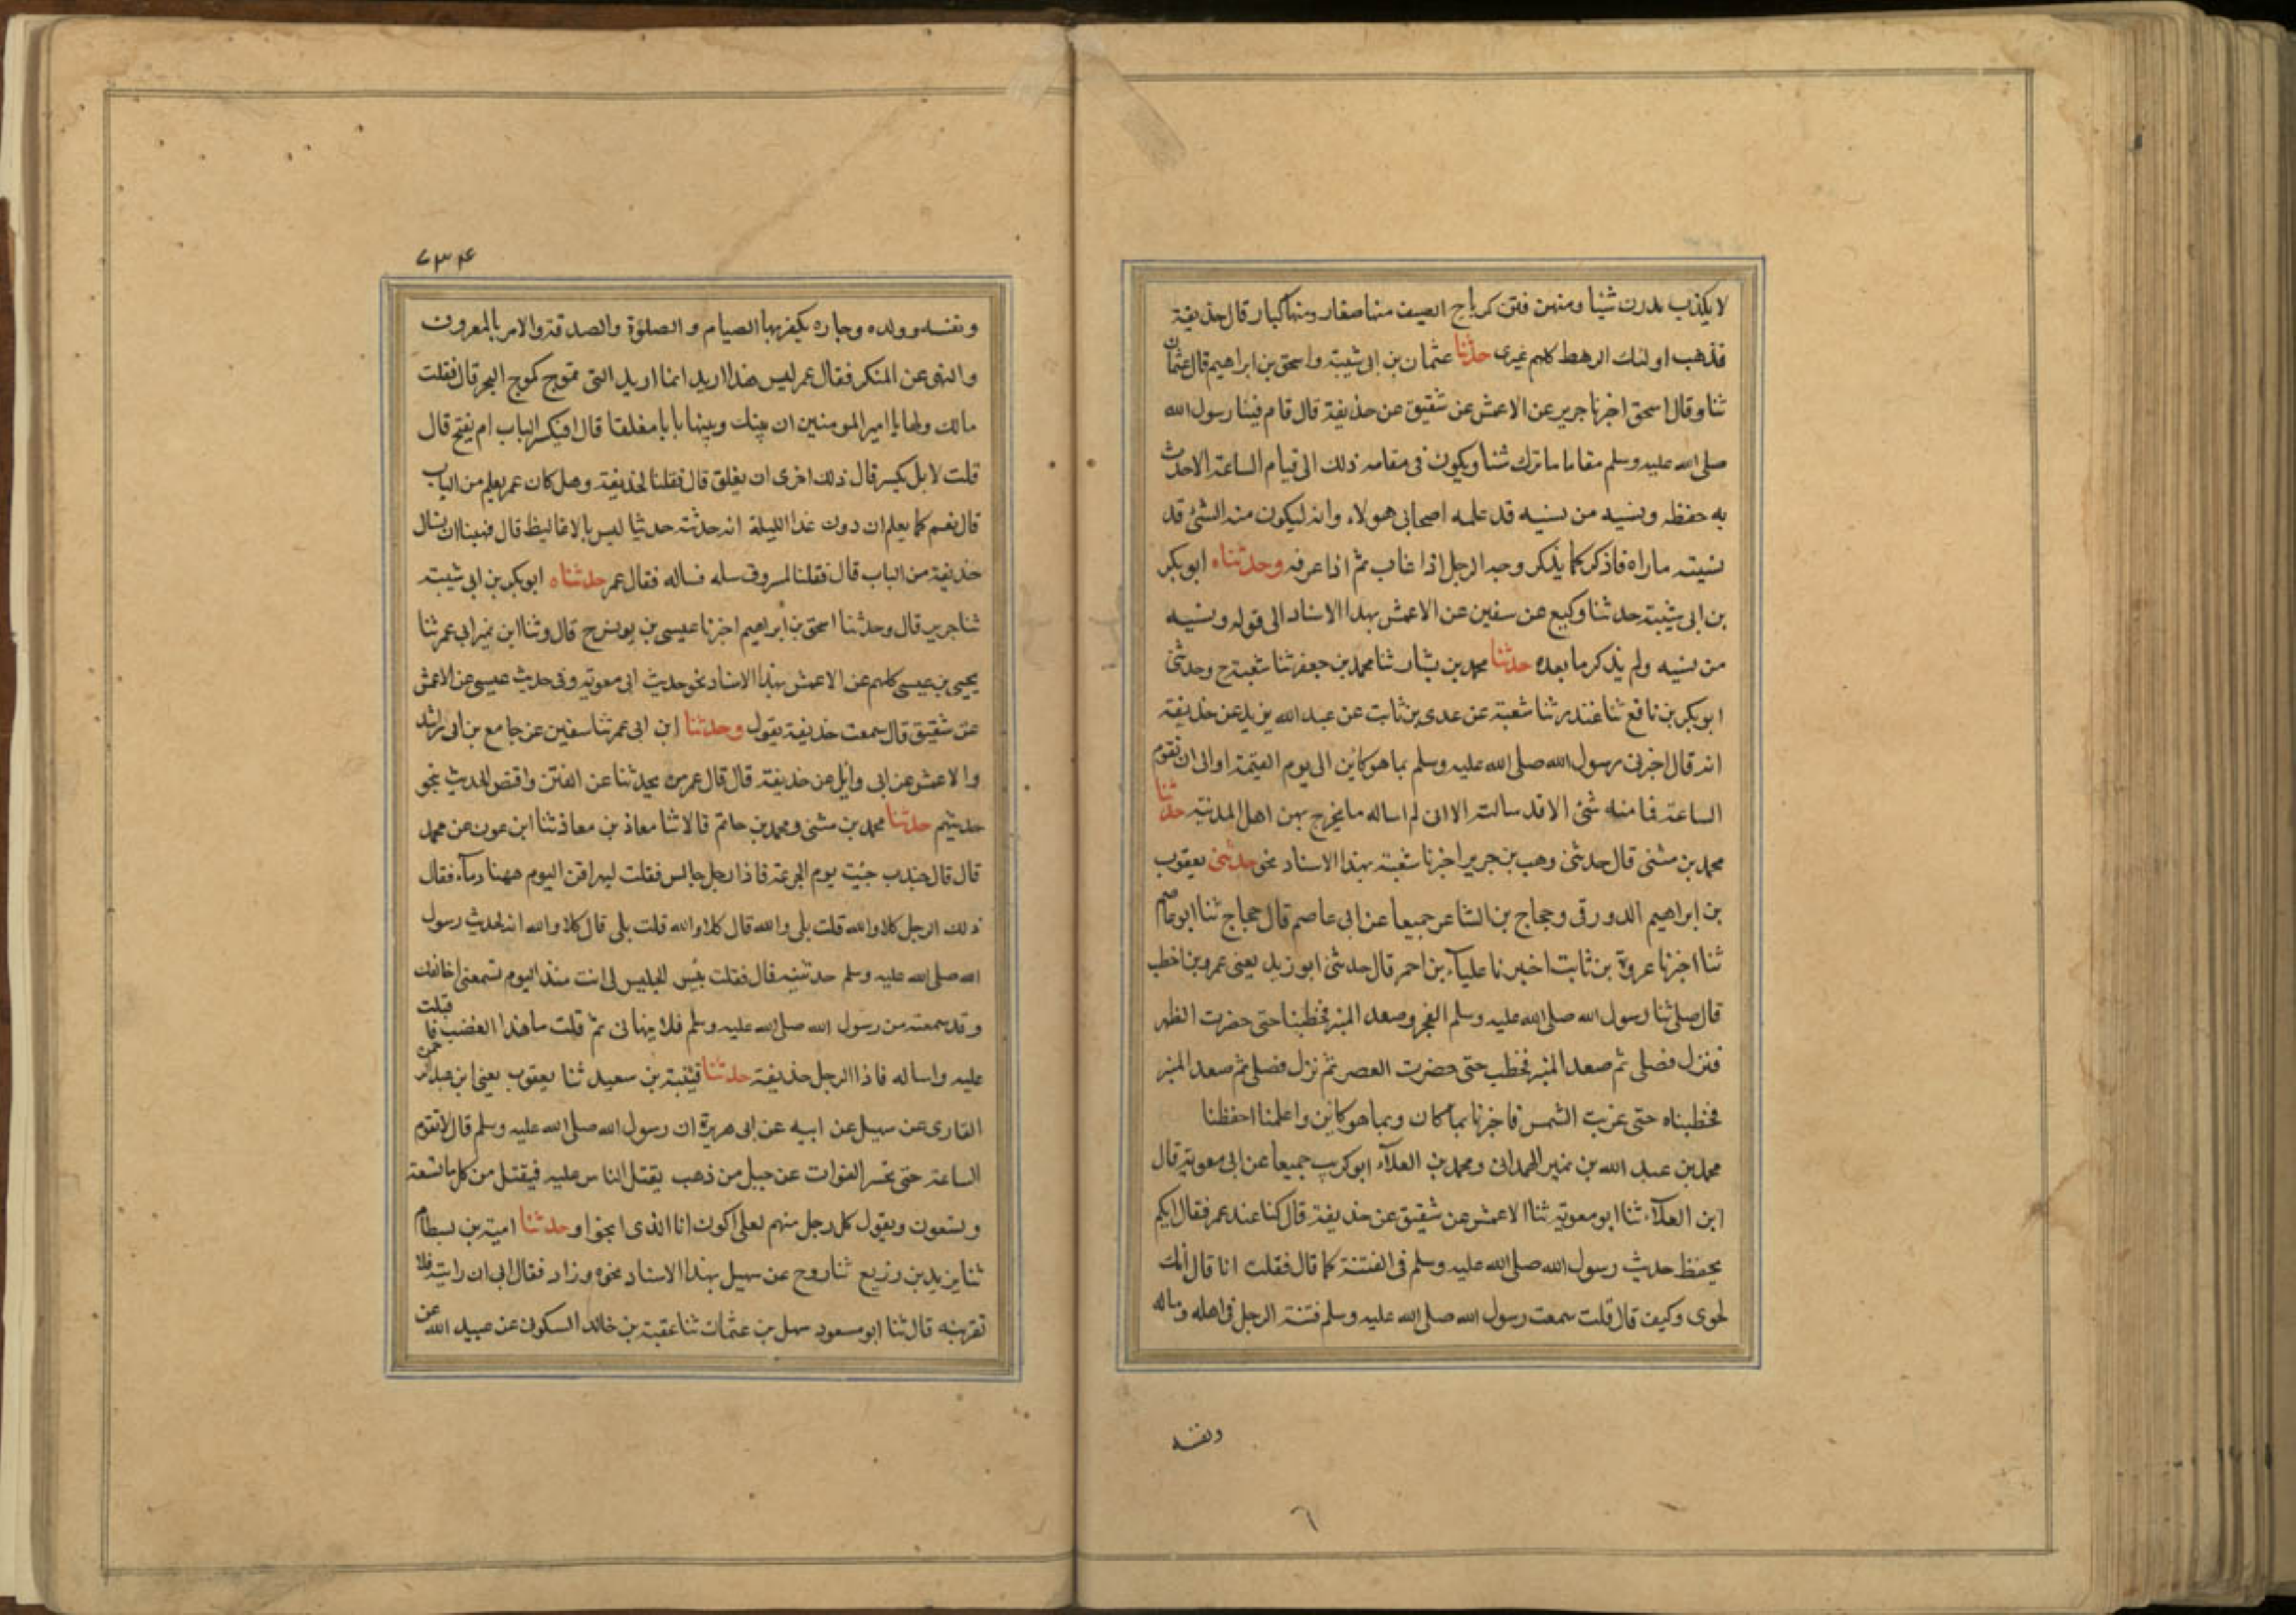 لا يكذب يدرن شيا ومنهن فتن كرياح الصيف منها صغار ومنها كبار قال حذيفة
فذهب اولئك الرهط كلهم غيرى حدثنا عثمان بن ابى شيبة واسحق بن ابراهيم قال عثمان
ثنا وقال اسحق اخبرنا جرير عن الاعمش عن شقيق عن حذيفة قال قام فينا رسول الله
صلى الله عليه وسلم مقاما ما ترك شيا ويكون فى مقامه ذلك الى قيام الساعة الاحدث
به حفظه ونسيه من نسيه قد علمه اصحابى هولاء وانه ليكون منه الشئ قد
نسيته ماراه فاذكر كما يذكر وجه الرجل اذا غاب ثم اذا عرفه وحدثناه ابوبكر
بن ابى شيبة حدثنا وكيع عن سفين عن الاعمش بهذا الاسناد الى قوله ونسيه
من نسيه ولم يذكر ما بعده حدثنا محمد بن بشار ثنا محمد بن جعفر ثنا شعبة ح وحدثنى
ابوبكر بن نافع ثنا غندر ثنا شعبة عن عدى بن ثابت عن عبد الله يزيد عن حذيفة
انه قال اخبرنى رسول الله صلى الله عليه وسلم بما هو كاين الى يوم القيمة او الى ان تقوم
الساعة فما منه شئ الا قد سالته الا انى لم اساله ما يخرج بهن اهل المدينة حدثنا
محمد بن مثنى قال حدثنى وهب بن جرير اخبرنا شعبة بهذا الاسناد نحو حدثنى يعقوب
بن ابراهيم الدورقى وحجاج بن الشاعر جميعا عن ابى عاصم قال حجاج ثنا ابو عاصم
ثنا اخبرنا عروة بن ثابت اخبرنا علياء بن احمر قال حدثنى ابو زيد يعنى عمرو بن اخطب
قال صلى ثنا رسول الله صلى الله عليه وسلم الفجر وصعد المنبر فخطبنا حتى حضرت الظهر
فنزل فصلى ثم صعد المنبر فخطب حتى حضرت العصر ثم نزل فصلى ثم صعد المنبر
فخطبناه حتى غربت الشمس فاخبرنا بما كان وبما هو كاين واعلمنا احفظنا
محمد بن عبد الله بن نمير الهمدانى ومحمد بن العلاء ابو كريب جميعا عن ابى معوية قال
ابن العلاء ثنا ابو معوية ثنا الاعمش عن شقيق عن حذيفة قال كنا عند عمر فقال ايكم
يحفظ حديث رسول الله صلى الله عليه وسلم فى الفتنة كما قال فقلت انا قال انك
لجوى وكيف قال قلت سمعت رسول الله صلى الله عليه وسلم فتنة الرجل فى اهله وماله
ونفسه
٦
٧٣٤
ونفسه وولده وجاره يكفرها الصيام والصلوة والصدقة والامر بالمعروف
والنهى عن المنكر فقال عمر ليس هذا اريد انما اريد التى تموج كموج البحر قال فقلت
مالك ولها يا امير المومنين ان بينك وبينها بابا مغلقا قال افيكسر الباب ام يفتح قال
قلت لا بل يكسر قال ذلك احرى ان يغلق قال فقلنا لحذيفة وهل كان عمر يعلم من الباب
قال نعم كما يعلم ان دون غدا الليلة انه حدثته حديثا ليس بالاغاليظ قال فهبنا ان نسال
حذيفة من الباب قال فقلنا لمسروق سله فساله فقال عمر حدثناه ابو بكر بن ابى شيبة
ثنا جرير قال وحدثنا اسحق بن ابرهيم اخبرنا عيسى بن يونس ح قال وثنا ابن نمير ابى عمر ثنا
يحيى بن عيسى كلهم عن الاعمش بهذا الاسناد نحو حديث ابى معوية وفى حديث عيسى عن الاعمش
عن شقيق قال سمعت حذيفة يقول وحدثنا ابن ابى عمر ثنا سفين عن جامع بن ابى راشد
والاعمش عن ابى وايل عن حذيفة قال قال عمر من يحدثنا عن الفتن واقتص الحديث بنحو
حديثهم حدثنا محمد بن مثنى ومحمد بن حاتم قالا ثنا معاذ بن معاذ ثنا ابن عون عن محمد
قال قال جندب جئت يوم الجرعة فاذا رجل جالس فقلت ليهراقن اليوم ههنا دماء فقال
ذلك الرجل كلا والله قلت بلى والله قال كلا والله قلت بلى قال كلا والله انه لحديث رسول
الله صلى الله عليه وسلم حدثنيه قال فقلت بئس الجليس لى انت منذ اليوم تسمعنى اخالفك
وقد سمعته من رسول الله صلى الله عليه وسلم فلا ينهانى ثم قلت ما هذا الغضب فاقبلت
عليه واساله فاذا الرجل حذيفة حدثنا قتيبة بن سعيد ثنا يعقوب يعنى ابن عبد الرحمن
القارى عن سهيل عن ابيه عن ابى هريرة ان رسول الله صلى الله عليه وسلم قال لا تقوم
الساعة حتى تحسر الفرات عن جبل من ذهب يقتل الناس عليه فيقتل من كل مائة تسعة
وتسعون ويقول كل رجل منهم لعلى اكون انا الذى انجو وحدثنا امية بن بسطام
ثنا يزيد بن زريع ثنا روح عن سهيل بهذا الاسناد نحوه وزاد فقال ابى ان رايته فلا
تقربنه قال ثنا ابو مسعود سهل بن عثمان ثنا عقبة بن خالد السكونى عن عبيد الله عن